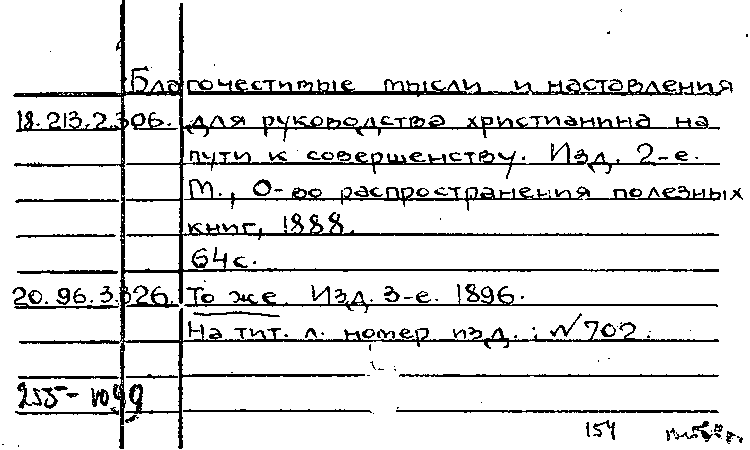 Благочестивые мысли и наставления
18.213.2.306. для руководства христианина на
пути к совершенству. Изд. 2-е.
М., О-во распространения полезных
книг, 1888.
64 с.
20.96.3.326. То же. Изд. 3-е. 1896.
На тит. л. номер изд.: № 702.
255-1099
154